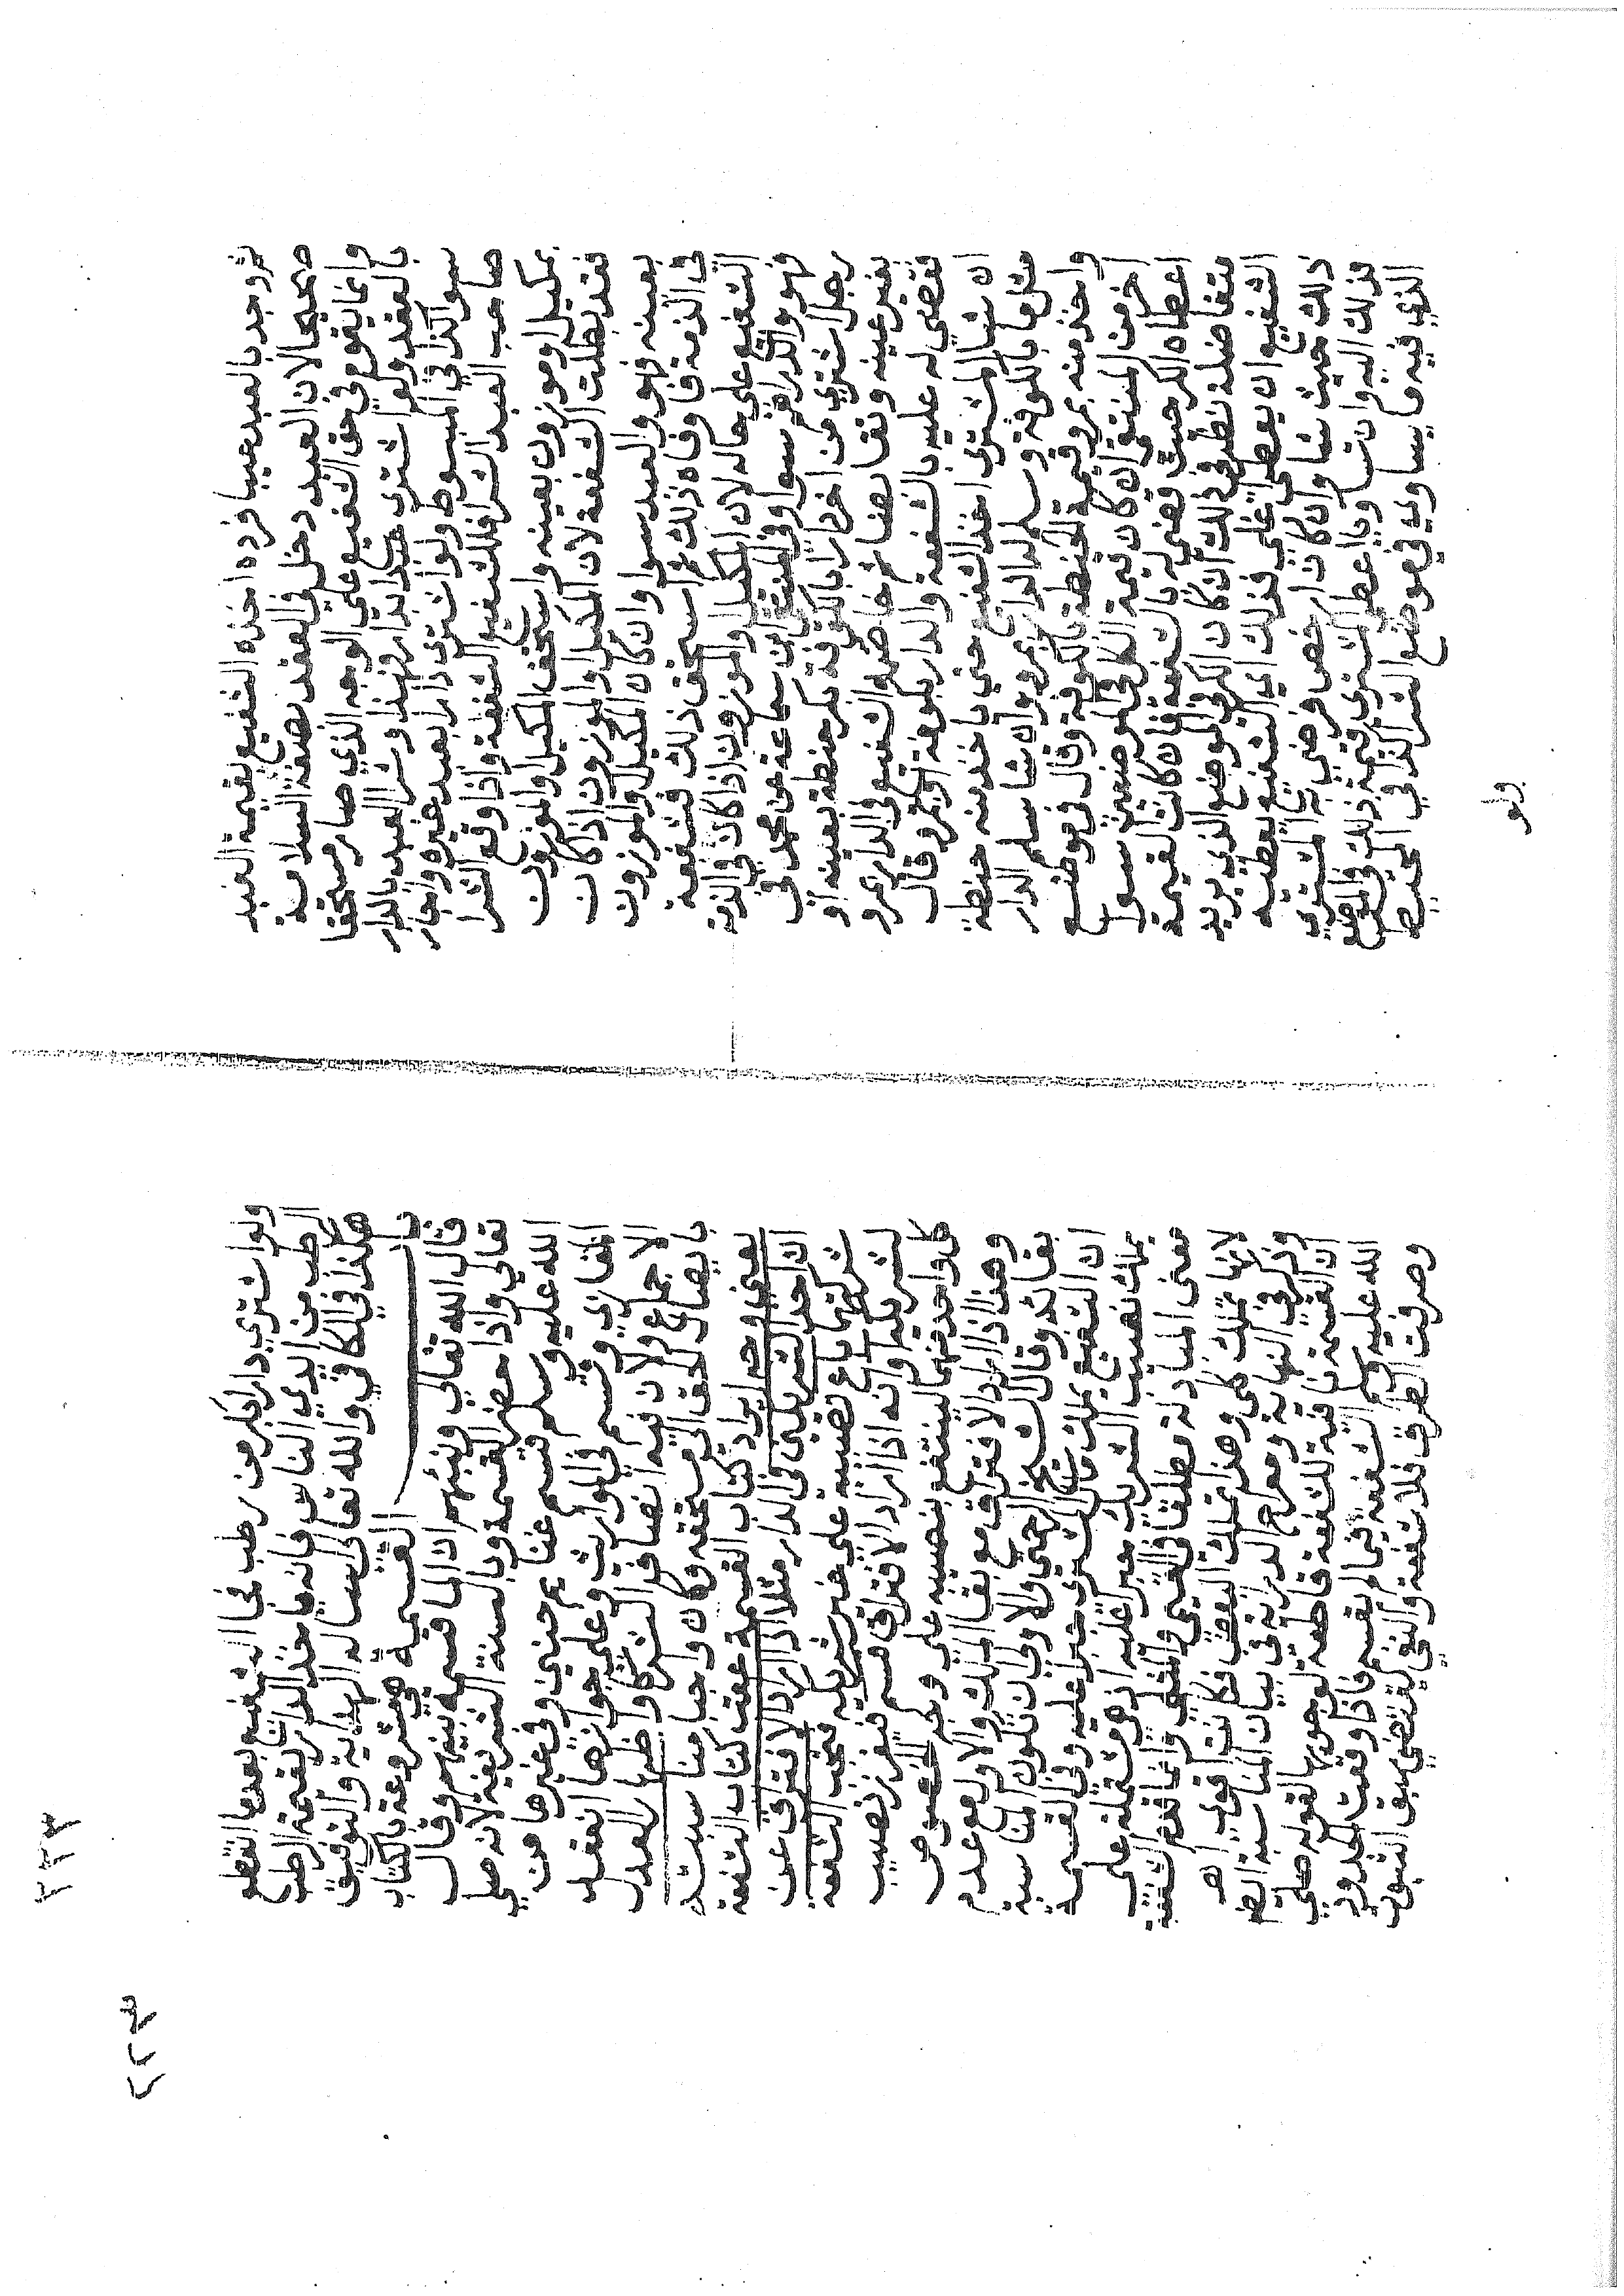 ثم وجد بالعبد عيبا فرده اخذه الشفيع بقيمة العبد
صحيحا لان العبد دخل في العقد بصفة السلامة
وانما يقوم في حق الشفيع على الوجه الذي صار مستحقا
بالعقد ولو اشترى عبدا بدار فهذا وشرا العبد بالدار
سوا كذا في المبسوط ولو اشترى دارا بعبد غيره واجاز
صاحب العبد الشرا فللشفيع الشفعة واذا وقع الشرا
بمكيل او موزون بعينه واستحق المكيل والموزون
فقد بطلت الشفعة لان المكيل والموزون اذا كان
بعينه فهو والعبد سوا وان كان المكيل والموزون
في الذمة فاوفاه ذلك ثم استحق ذلك فشفعة
الشفيع على حاله لان المكيل والموزون اذا كان في الذمة
فهو والدراهم سوا وفي المنتقى ابن سماعة عن محمد في
رجل اشترى من اخر دارا بالكوفة بكر حنطة بعينه او
بغير عينه وتقابضا ثم خاصمه الشفيع في الدار بمرو
فقضي له عليه بالشفعة والدار بكوفة او بمرو قال
ان شا المشتري اخذ الشفيع حتى ياخذ منه حنطة
مثل ما بالكوفة وسلم له الدار بمرو وان شا سلم الدار
واخذ منه بمرو قيمة الحنطة بالكوفة وقال في موضع
اخر من المنتقى ان كان قيمة الكر في الموضعين سوا
اعطاه الكر حيث قضي له بالشفعة فان كانت القيمة
متفاضلة نظر في ذلك ان كان الكر في الموضع الذي يريد
الشفيع ان يعطي اغلى فذلك الى الشفيع يعطيه
ذلك حيث شا وان كان ارخص فرضي به المشتري
فذلك اليه وان تشاويا اعطى المشتري قيمة ذلك في الموضع
الذي فيه ما يساويه في موضع الشرا كذا في المحيط
ولو
ولو اشترى دارا بكر من رطب فجا الشفيع بعد ما انقطع
الرطب من ايدي الناس فانه ياخذ الدار بقيمة الرطب
هكذا في الكافي والله تعالى اساله الهداية والتوفيق
باب القسمة هي مشروعة بالكتاب
قال الله تعالى ونبئهم ان الما قسمة بينهم وقال
تعالى واذا حضر القسمة وبالسنة الشريفة لانه صلى
الله عليه وسلم قسم غنائم حنين وفي غيرها من
المغازي وقسم في المواريث وعلى جوازها انعقد
الاجماع ولان فيه انصاف الشركا واظهار العدل
بايصال الحق الى مستحقه وكان واجبا مناسبته
يعني وجه ايراد كتاب القسمة عقب كتاب الشفعة
ان احد الشريكين في الدار مثلا اذا اراد الافتراق عن
شركتها باع نصيبه على غير شريكه فتجب الشفعة
لشريكه وانه اذا اراد الافتراق قسم فيفرز نصيب
كل واحد منهما لينتفع بنصيبه على وجه الخصوص
وهذا اذا اراد الافتراق مع بقا الملك والاول مع عدم
بقائه وقال الشيخ الرحمتي والاولى ان تكون المناسبة
ان الشفيع يملك مال المشتري جبرا عليه وفي القسمة
يملك نصيب الشريك جبرا عليه اذ هي مشتملة على
معنى المبادلة مطلقا في القيمي والمثلي وانما قدم الشفعة
لانها تملك كلي وهذا تملك البعض فكانت اقوى اهـ
وذكر في النهاية ومعراج الدراية في بيان المناسبة ايضا
ان القسمة نافية للشفعة قاطعة لوجوبها لقوله صلى
الله عليه وسلم الشفعة فيما لم يقسم فاذا وقعت الحدود
وصرفت الطرق فلا شفعة والنفي يقتضي سبق الثبوت
٢٢٣
٢٢٣